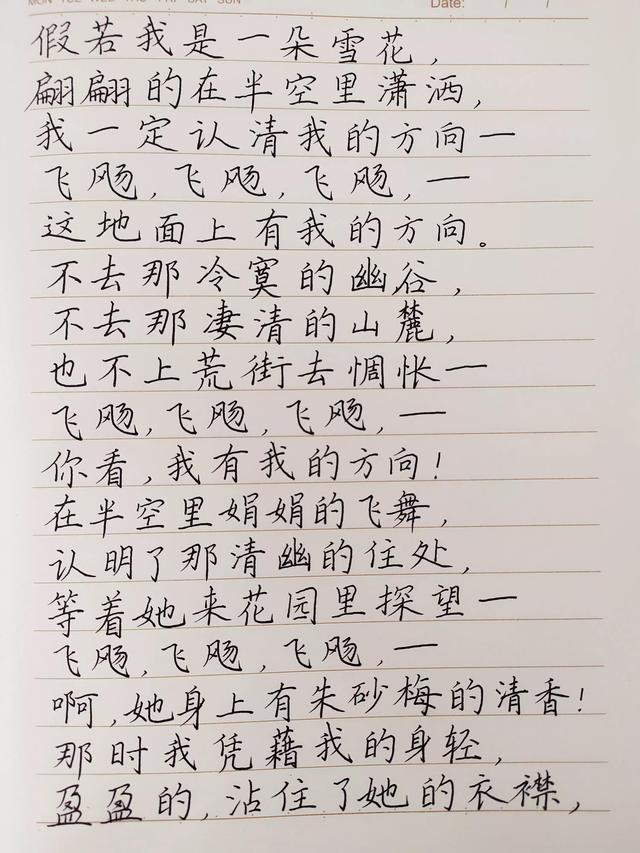 MON TUE WED THU FRI SAT SUN
Date: / /
假若我是一朵雪花，
翩翩的在半空里潇洒，
我一定认清我的方向一
飞飏，飞飏，飞飏，一
这地面上有我的方向。
不去那冷寞的幽谷，
不去那凄清的山麓，
也不上荒街去惆怅一
飞飏，飞飏，飞飏，一
你看，我有我的方向！
在半空里娟娟的飞舞，
认明了那清幽的住处，
等着她来花园里探望一
飞飏，飞飏，飞飏，一
啊，她身上有朱砂梅的清香！
那时我凭藉我的身轻，
盈盈的，沾住了她的衣襟，